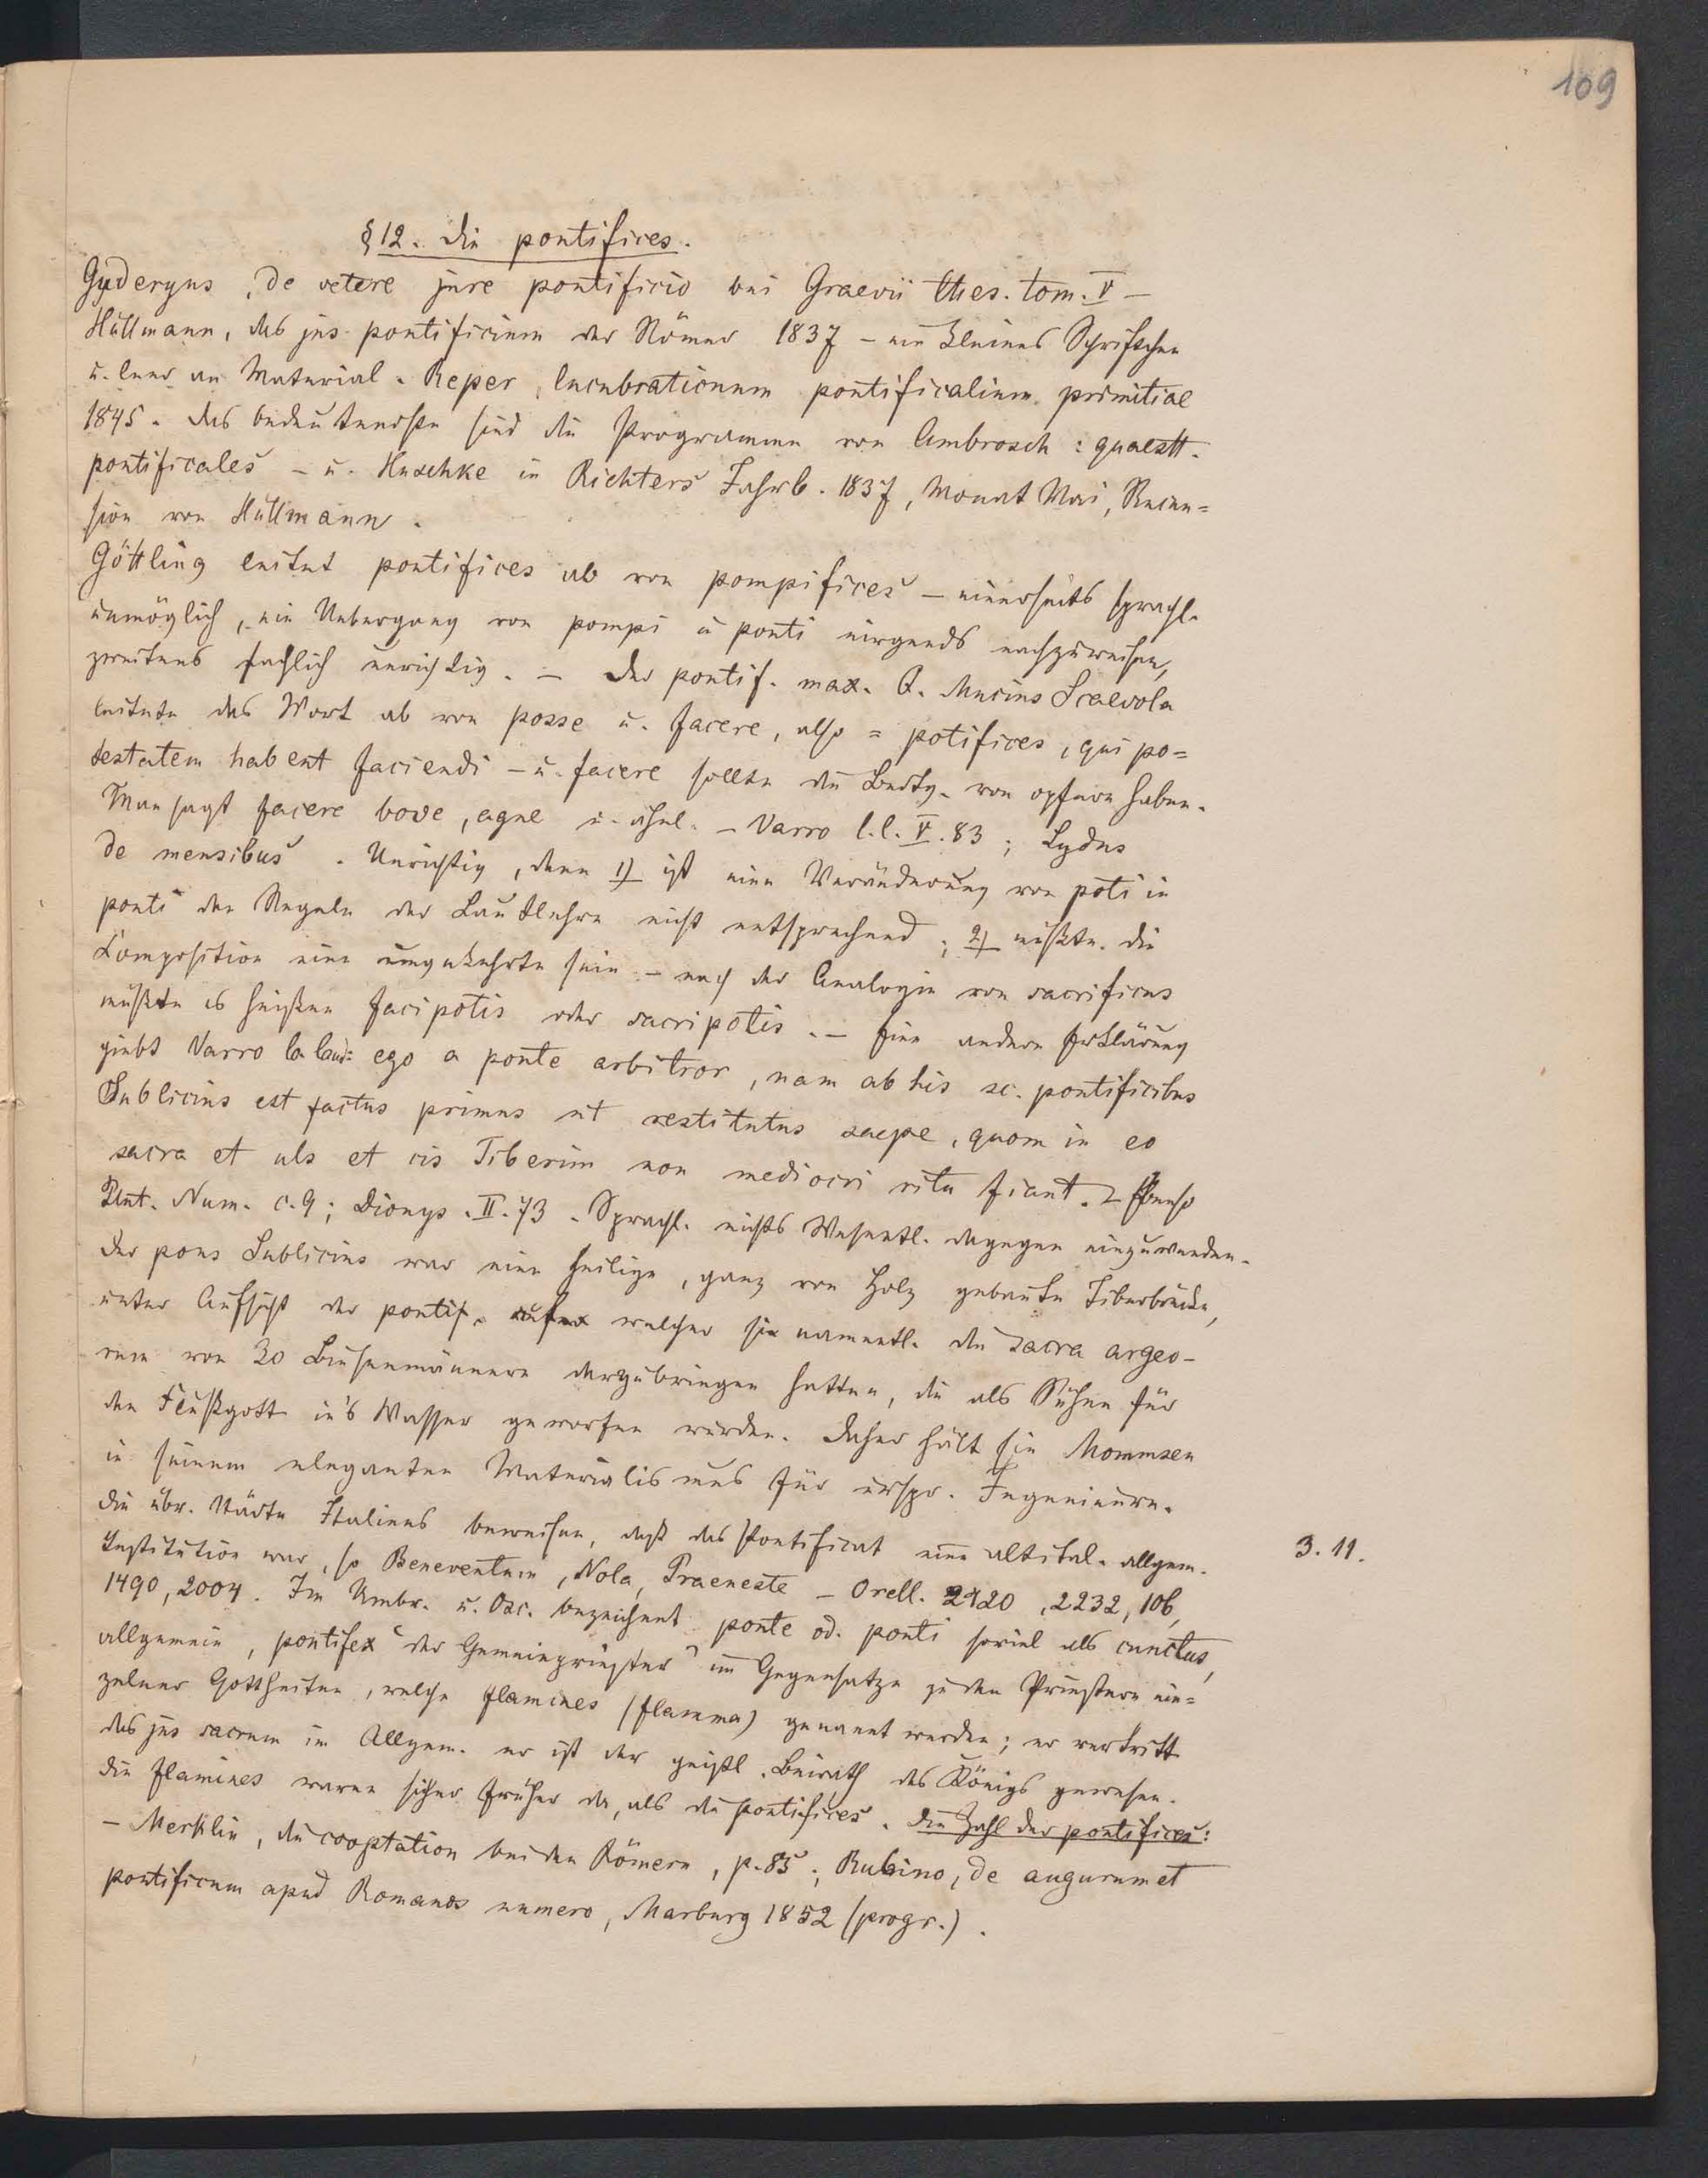 109
§ 12. Die pontifices.
Gyderyns, de vetere jure pontificio bei Graevii thes. tom. V –
Hüllmann, das jus pontificium der Römer 1837 – ein kleines Schriftchen
u. leer an Material. Reper, lucubrationum pontificalium primitiae
1845. Das bedeutendste sind die Programme von Ambrosch: quaestt.
pontificales – u. Huschke in Richters Jahrb. 1837, Monat Mai, Recen=
sion von Hüllmann.
Göttling leitet pontifices ab von pompifices – einerseits sprachl.
unmöglich, ein Uebergang von pompi in ponti nirgends nachzuweisen,
zweitens sachlich unrichtig. – Der pontif. max. Q. Mucius Scaevola
leitete das Wort ab von posse u. facere, also = potifices, qui po=
testatem habent faciendi – u. facere sollte die Bedtg. von opfern haben.
Man sagt facere bove, agne u. ähnl. – Varro l.l. V. 83; Lydus
de mensibus. Unrichtig, denn 1) ist eine Veränderung von poti in
ponti den Regeln der Lautlehre nicht entsprechend; 2) müßte die
Composition eine umgekehrte sein – nach der Analogie von sacrificus
müßte es heißen facipotis oder sacripotis. – Eine andere Erklärung
giebt Varro ego a ponte arbitror, nam ab his sc. pontificibus
Sublicius est factus primus ut restitutus saepe, quom in eo
sacra et uls et cis Tiberim non mediocri ritu fiant. – Ebenso
Plut. Num. c. 9; Dionys. II. 73. Sprachl. nichts Wesentl. dagegen einzuwenden.
Der pons Sublicius war eine heilige, ganz von Holz gebaute Tiberbrücke,
unter Aufsicht der pontif. auf welcher sie namentl. die sacra argeo-
rum von 30 Binsenmännern darzubringen hatten, die als Sühne für
den Flußgott in's Wasser geworfen wurden. Daher hält sie Mommsen
in seinem eleganten Materialismus für urspr. Ingenieure.
Die übr. Städte Italiens beweisen, daß das Pontificat eine altital. allgem.
3. 11.
Institution war, so Beneventum, Nola, Praeneste – Orell. 2920, 2232, 106,
1490, 2004. Im Umbr. u. Osc. bezeichnet ponte od. ponti soviel als cunctus,
allgemein, pontifex "der Gemeinpriester" im Gegensatze zu den Priestern ein=
zelner Gottheiten, welche flamines (flamma) genannt werden; er vertritt
das jus sacrum im Allgem. er ist der geistl. Beirath des Königs gewesen.
Die flamines waren sicher früher da, als die pontifices. Die Zahl der pontifices:
– Merklin, die cooptation bei den Römern, p. 85; Rubino, de augurum et
pontificum apud Romanos numero, Marburg 1852 (progr.).